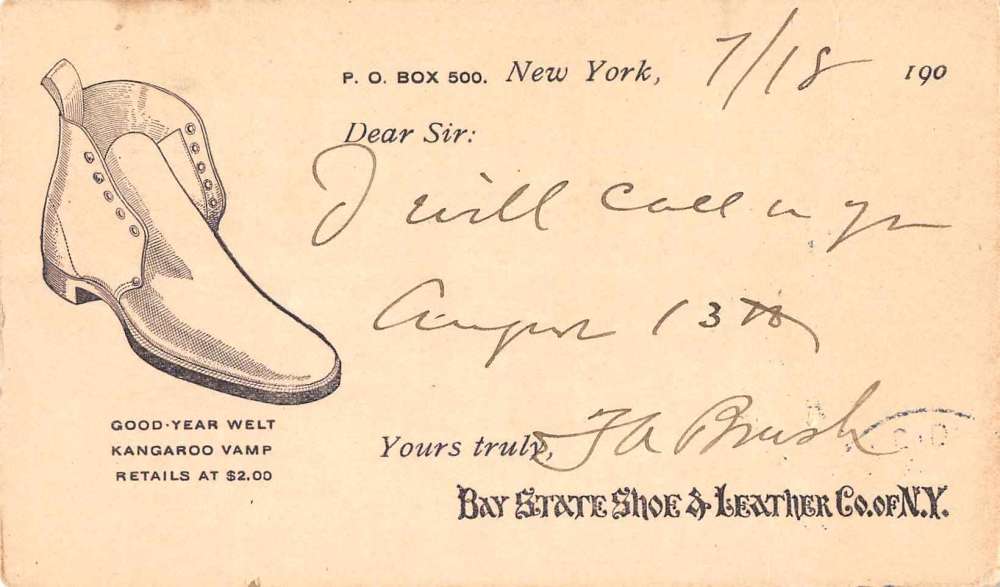 P. O. BOX 500. New York, 7/18 190
Dear Sir:
I will call on you
August 13th
GOOD-YEAR WELT
KANGAROO VAMP
RETAILS AT $2.00
Yours truly, F A Brush
BAY STATE SHOE & LEATHER CO. OF N.Y.